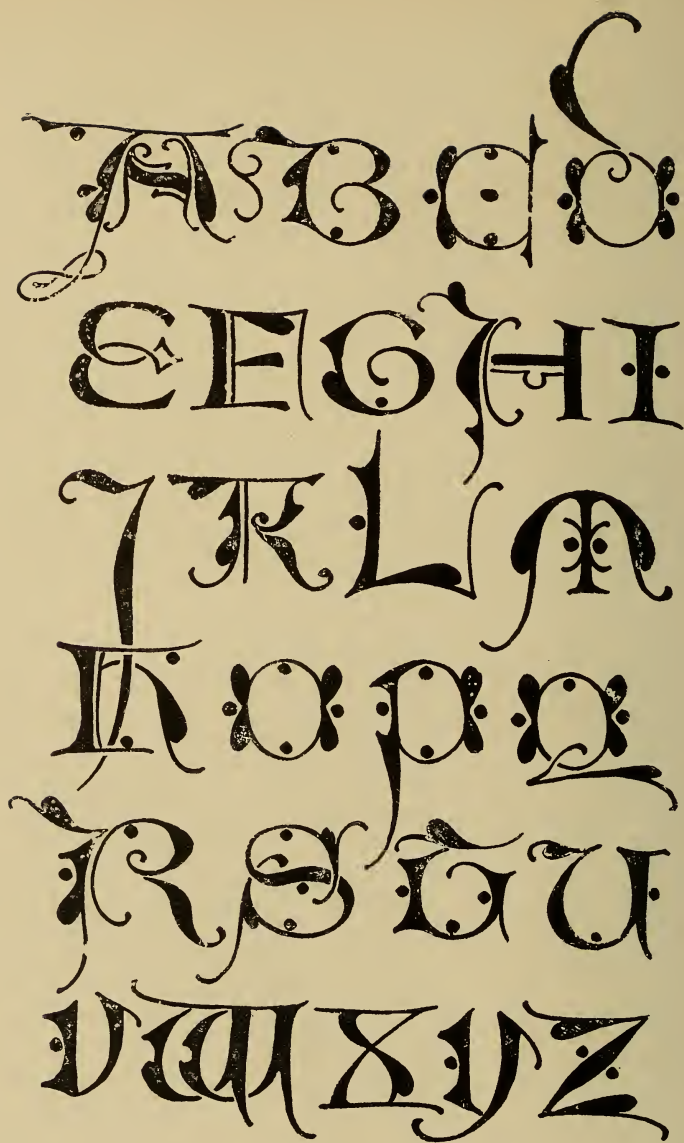 A B C D
E F G H I
J K L M
N O P Q
R S T U
V W X Y Z